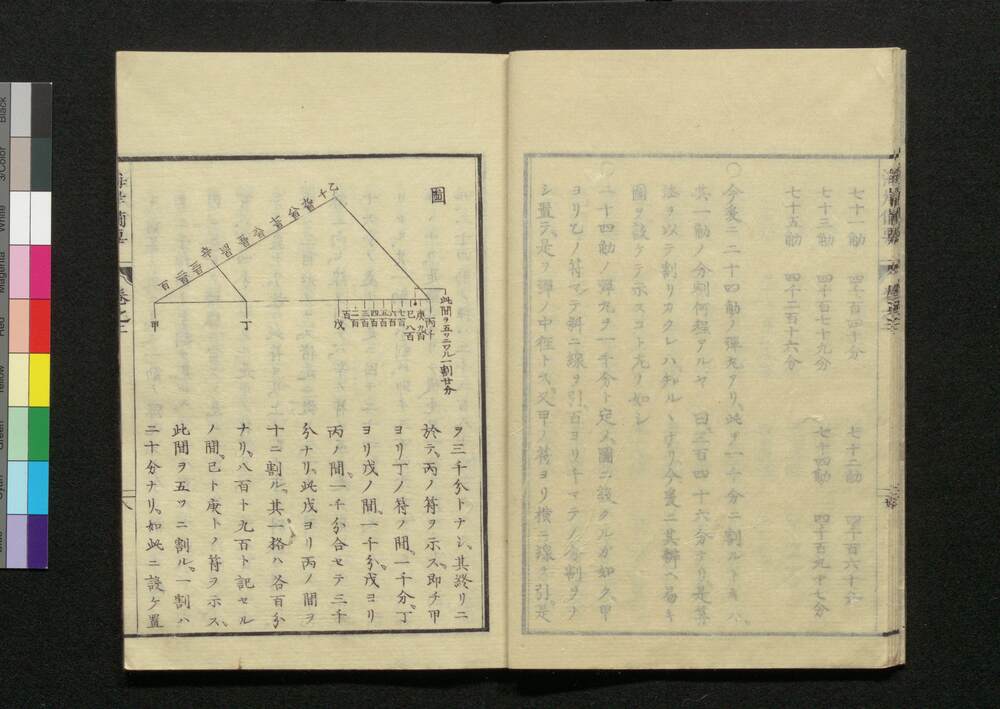 七十一動 四千百四十分 七十二動 四千百六十分
七十三動 四千百七十九分 七十四動 四千百九十七分
七十五動 四千二百十六分
〇今爰ニ二十四動ノ弾丸アリ、此ヲ一千分ニ割ルトキハ、
其一動ノ分剣何程アルヤ 曰三百四十六分ナリ是算
法ヲ以テ割リカクレハ知ルヽナリ今爰ニ其解ヘ易キ
圖ヲ設ケテ示スコト左リ如シ
〇二十四動ノ弾丸ヲ一千分ト定メ圖ニ設クルガ如ク甲
ヨリ乙ノ符マテ斜ニ線ヲ引百ヨリ千マテノ分割ヲナ
シ置テ、是ヲ弾ノ中径トス、又甲ノ符ヨリ横ニ線ヲ引、是
圖
乙
千
百
甲
丁
戊
百
二百
三百
四百
五百
六百
七百
己
八百
庚
九百
丙
千
此間ヲ五ツニワル一割廿分
ヲ三千分トナシ、其終リニ
於テ、丙ノ符ヲ示ス、即チ甲
ヨリ丁ノ符ノ間、一千分、丁
ヨリ戊ノ間、一千分、戊ヨリ
丙ノ間、一千分、合セテ三千
分ナリ、此戊ヨリ丙ノ間ヲ
十ニ割ル、其一格ハ各百分
ナリ、八百ト九百ト記セル
ノ間、己ト庚トノ符ヲ示ス、
此間ヲ五ツニ割ル、一割ハ
二十分ナリ、如此ニ設ケ置